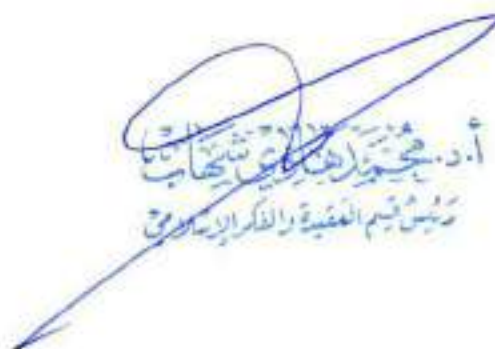 أ.د. محمد هادي شهاب
رئيس قسم العقيدة والفكر الإسلامي